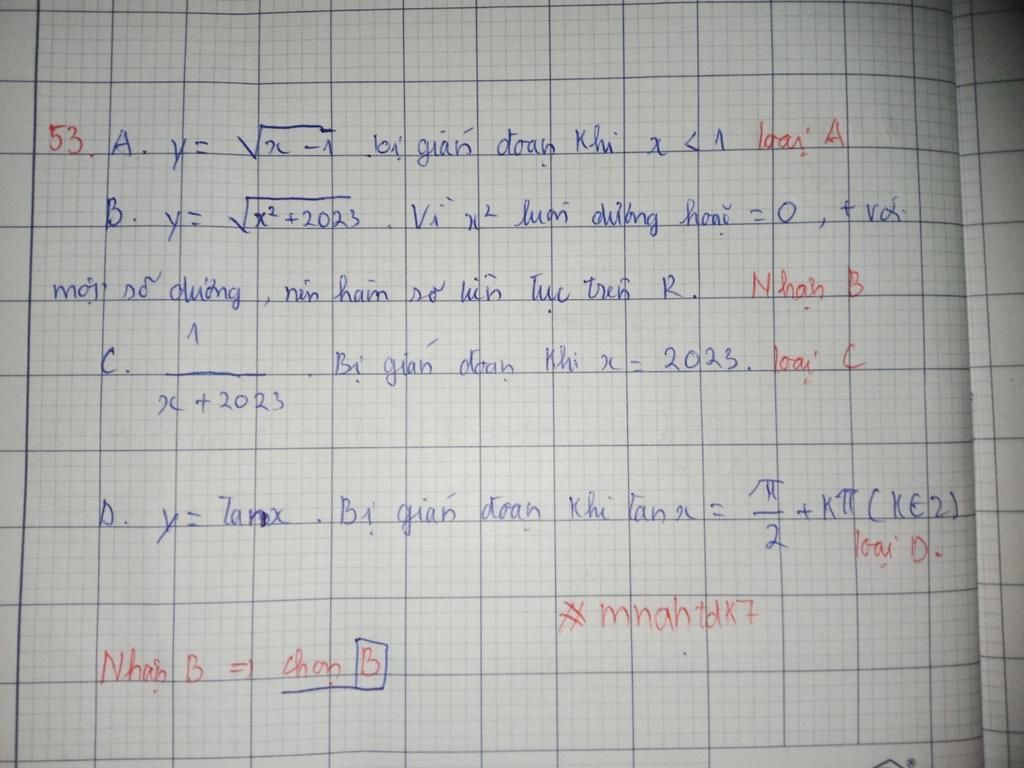 53. A. y = √x - 1 . bị gián đoạn khi x < 1 loại A
B. y = √x² + 2023 . Vì x² luôn dương hoặc = 0 , + với
một số dương , nên hàm số liên tục trên R. Nhận B
C. 1/x + 2023 . Bị gián đoạn khi x = 2023. loại C
D. y = Tanx . Bị gián đoạn khi tanx = π/2 + kπ (K∈Z)
loại D.
* mnahtdk7
Nhận B => chọn B